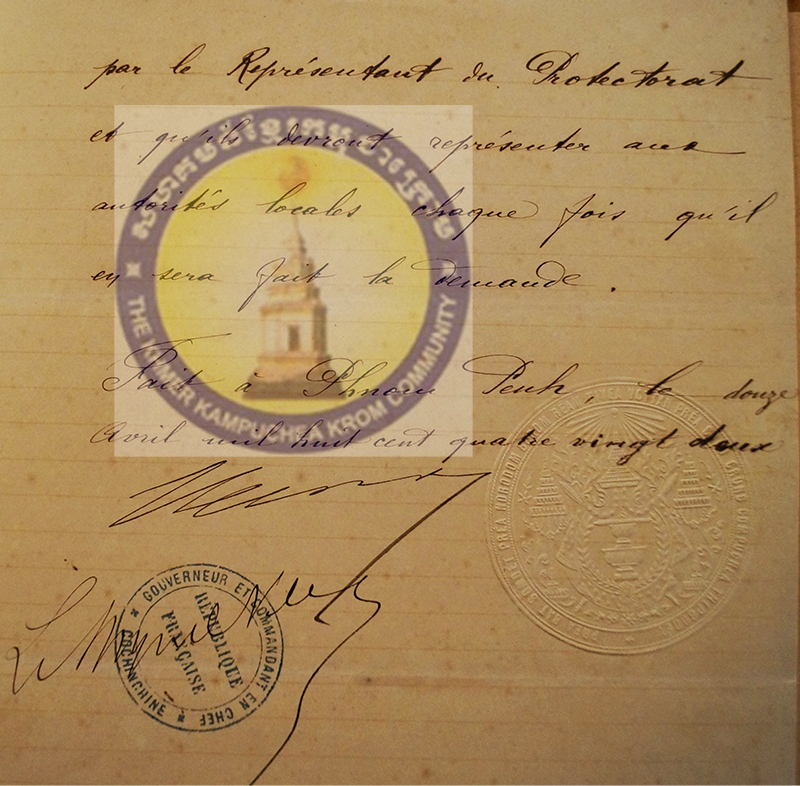 par le Représentant du Protectorat
et qu'ils devront représenter aux
autorités locales chaque fois qu'il
en sera fait la demande.
Fait à Phnom Penh, le douze
Avril mil huit cent quatre vingt deux
THE KHMER KAMPUCHEA KROM COMMUNITY
Le Myre de Vilers
GOUVERNEUR ET COMMANDANT EN CHEF
COCHINCHINE
RÉPUBLIQUE
FRANÇAISE